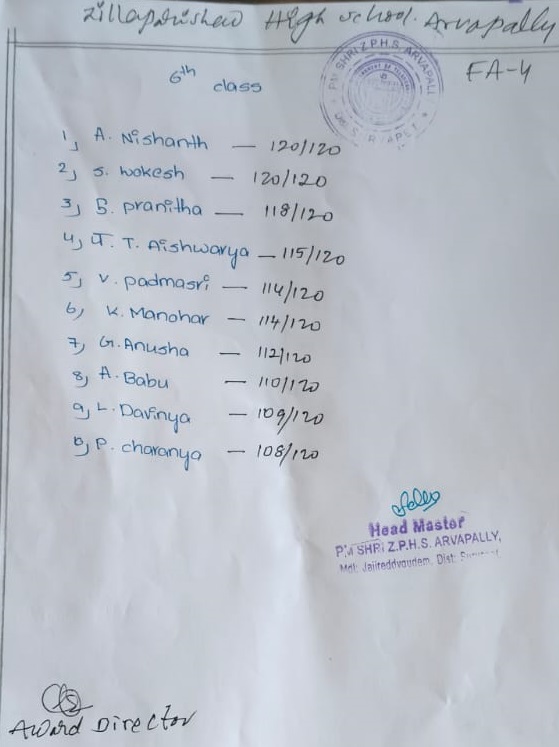 Zillaparishad High School. Arvapally
FA-4
PM SHRI Z.P.H.S. ARVAPALLY
6th class
1, A. Nishanth — 120/120
2, S. Wokesh — 120/120
3, B. pranitha — 118/120
4, T. Aishwarya — 115/120
5, V. padmasri — 114/120
6, K. Manohar — 114/120
7, G. Anusha — 112/120
8, A. Babu — 110/120
9, L. Davinya — 109/120
10, P. charanya — 108/120
Head Master
PM SHRI Z.P.H.S. ARVAPALLY,
Mdl: Jajireddygudem, Dist:
Award Director